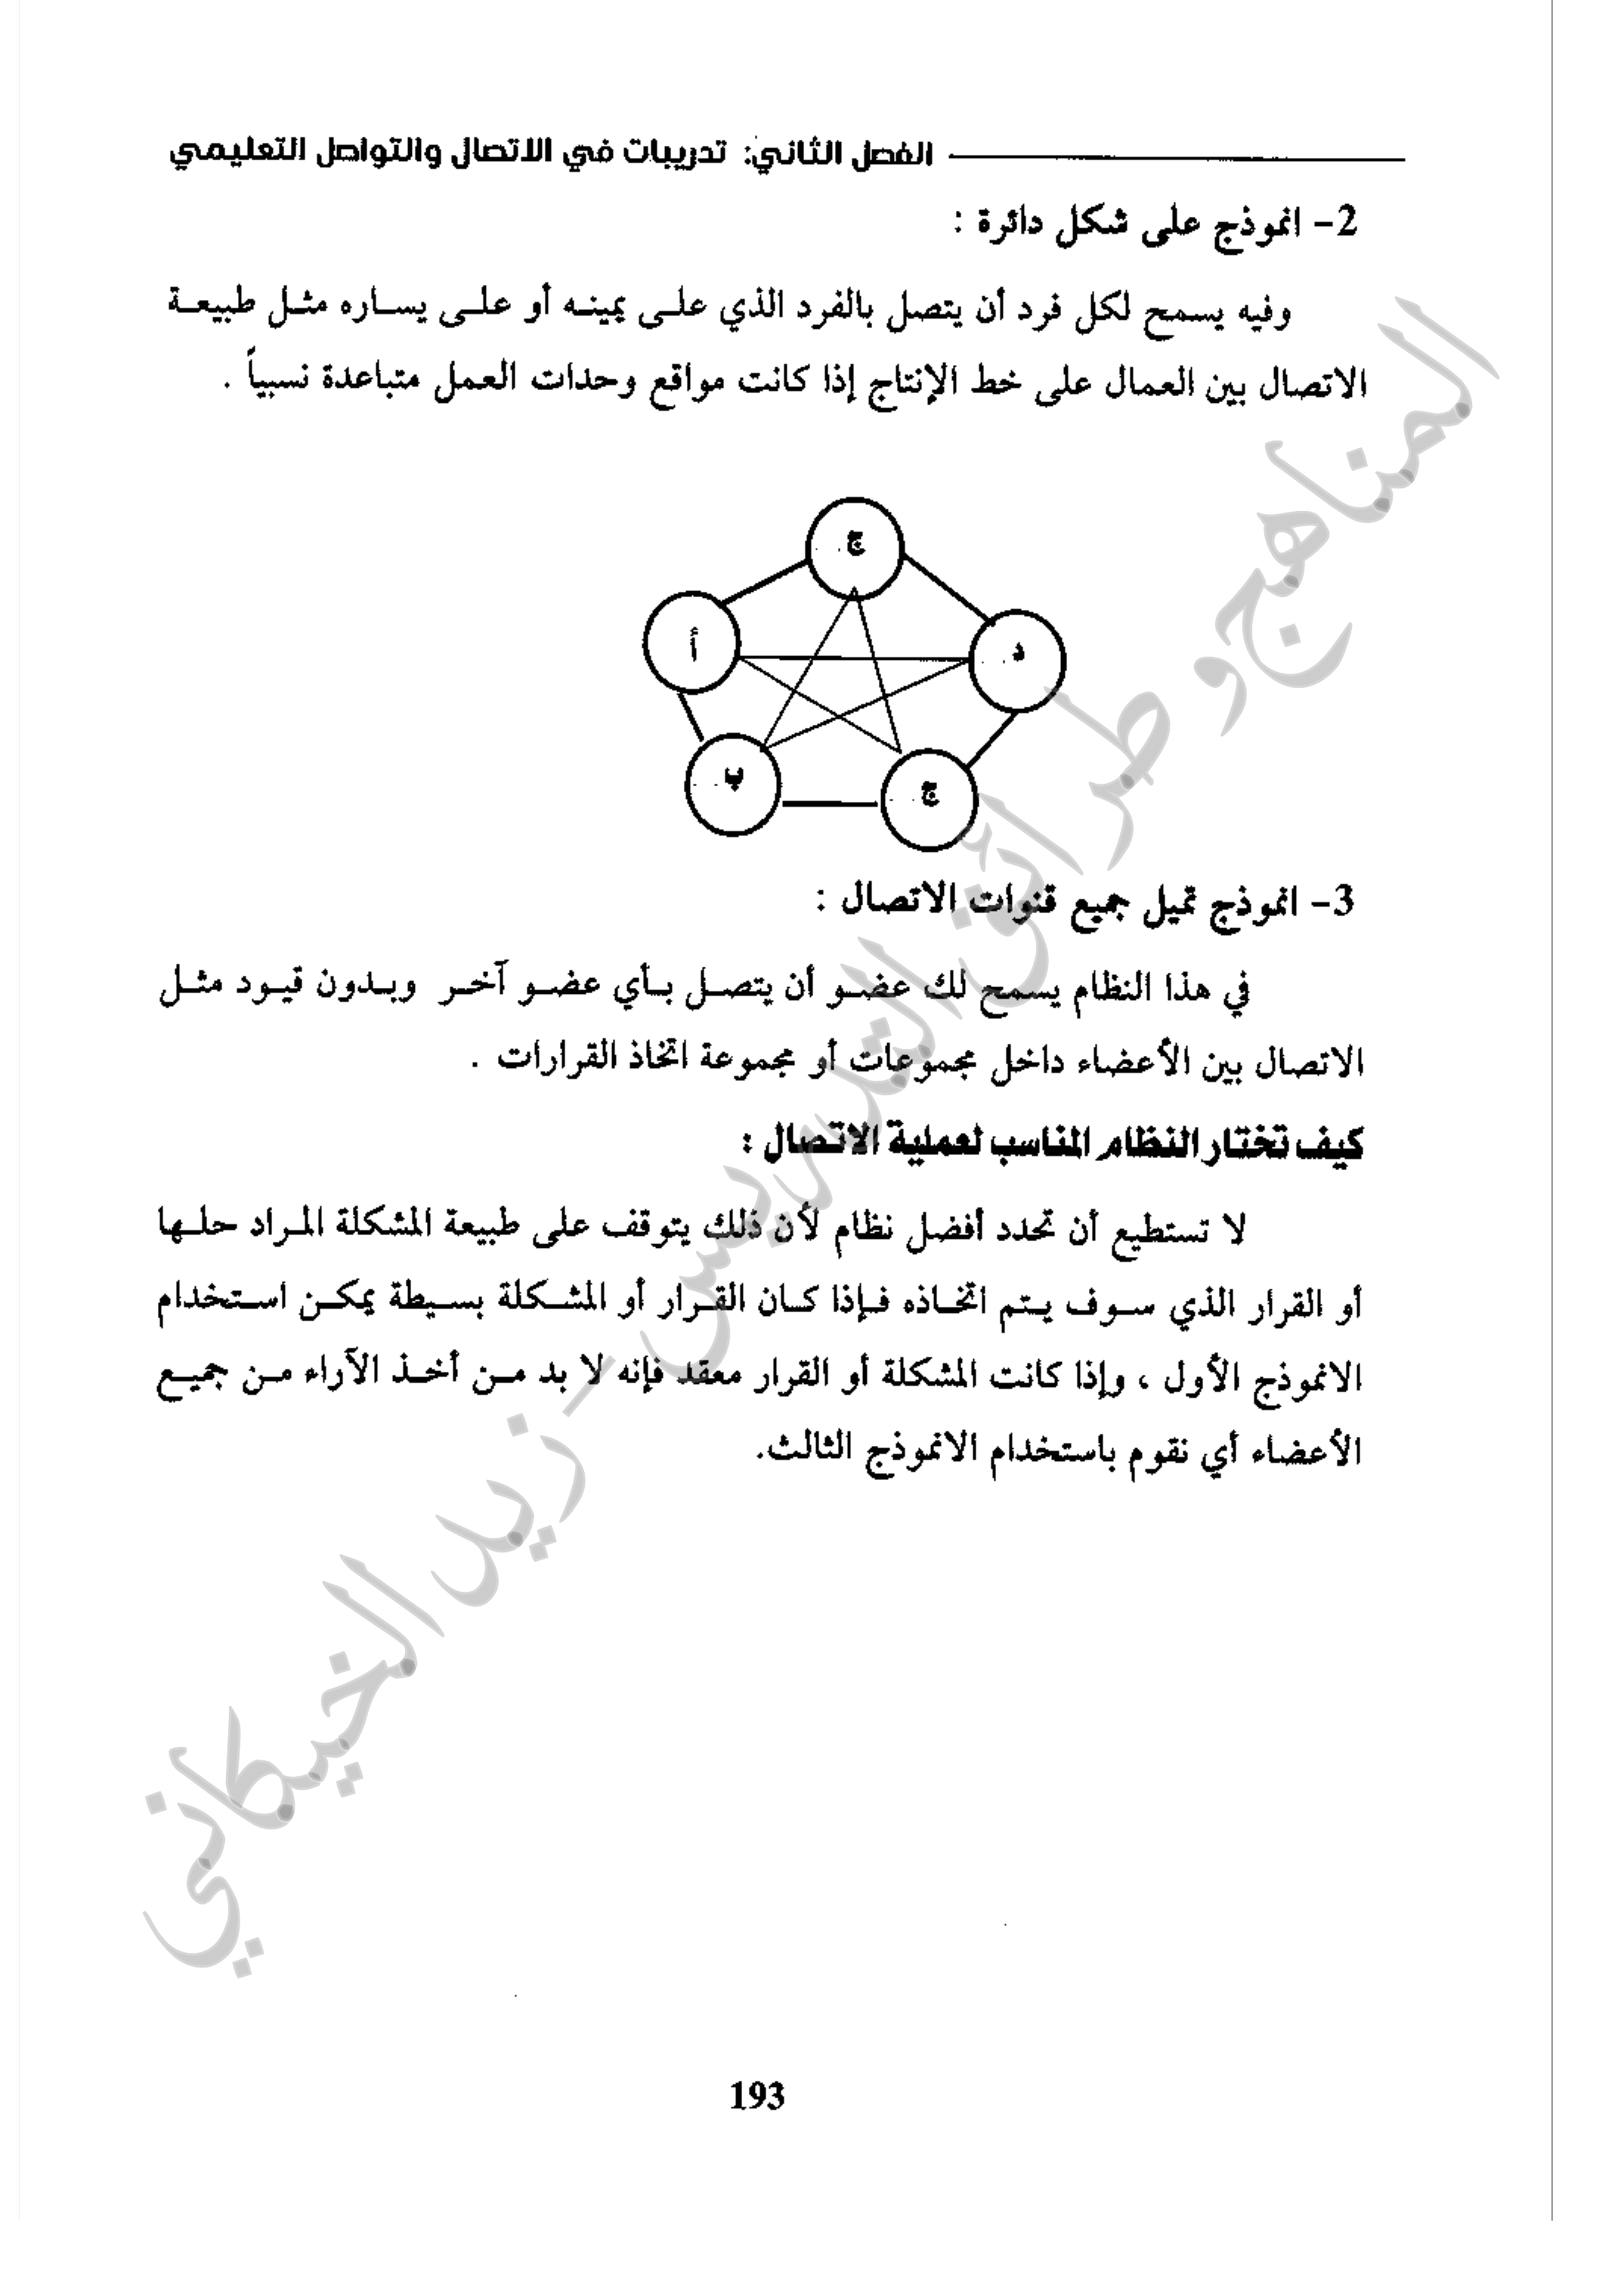 الفصل الثاني: تدريبات في الاتصال والتواصل التعليمي
2- انموذج على شكل دائرة :
وفيه يسمح لكل فرد أن يتصل بالفرد الذي على يمينه أو على يساره مثل طبيعة
الاتصال بين العمال على خط الإنتاج إذا كانت مواقع وحدات العمل متباعدة نسبياً .
ج
أ
د
ب
ج
3- انموذج تميل جميع قنوات الاتصال :
في هذا النظام يسمح لك عضو أن يتصل بأي عضو آخر وبدون قيود مثل
الاتصال بين الأعضاء داخل مجموعات أو مجموعة اتخاذ القرارات .
كيف تختار النظام المناسب لعملية الاتصال :
لا تستطيع أن تحدد أفضل نظام لأن ذلك يتوقف على طبيعة المشكلة المراد حلها
أو القرار الذي سوف يتم اتخاذه فإذا كان القرار أو المشكلة بسيطة يمكن استخدام
الانموذج الأول ، وإذا كانت المشكلة أو القرار معقد فإنه لا بد من أخذ الآراء من جميع
الأعضاء أي نقوم باستخدام الانموذج الثالث.
المناهج وطرائق التدريس - زيد الخيكاني
193